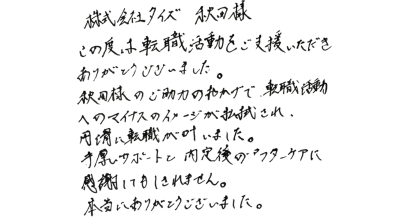 株式会社クイズ 秋田様
この度は転職活動をご支援いただき
ありがとうございました。
秋田様のご助力のおかげで、転職活動
へのマイナスのイメージが払拭され、
円滑に転職が叶いました。
手厚いサポートと内定後のアフターケアに
感謝してもしきれません。
本当にありがとうございました。